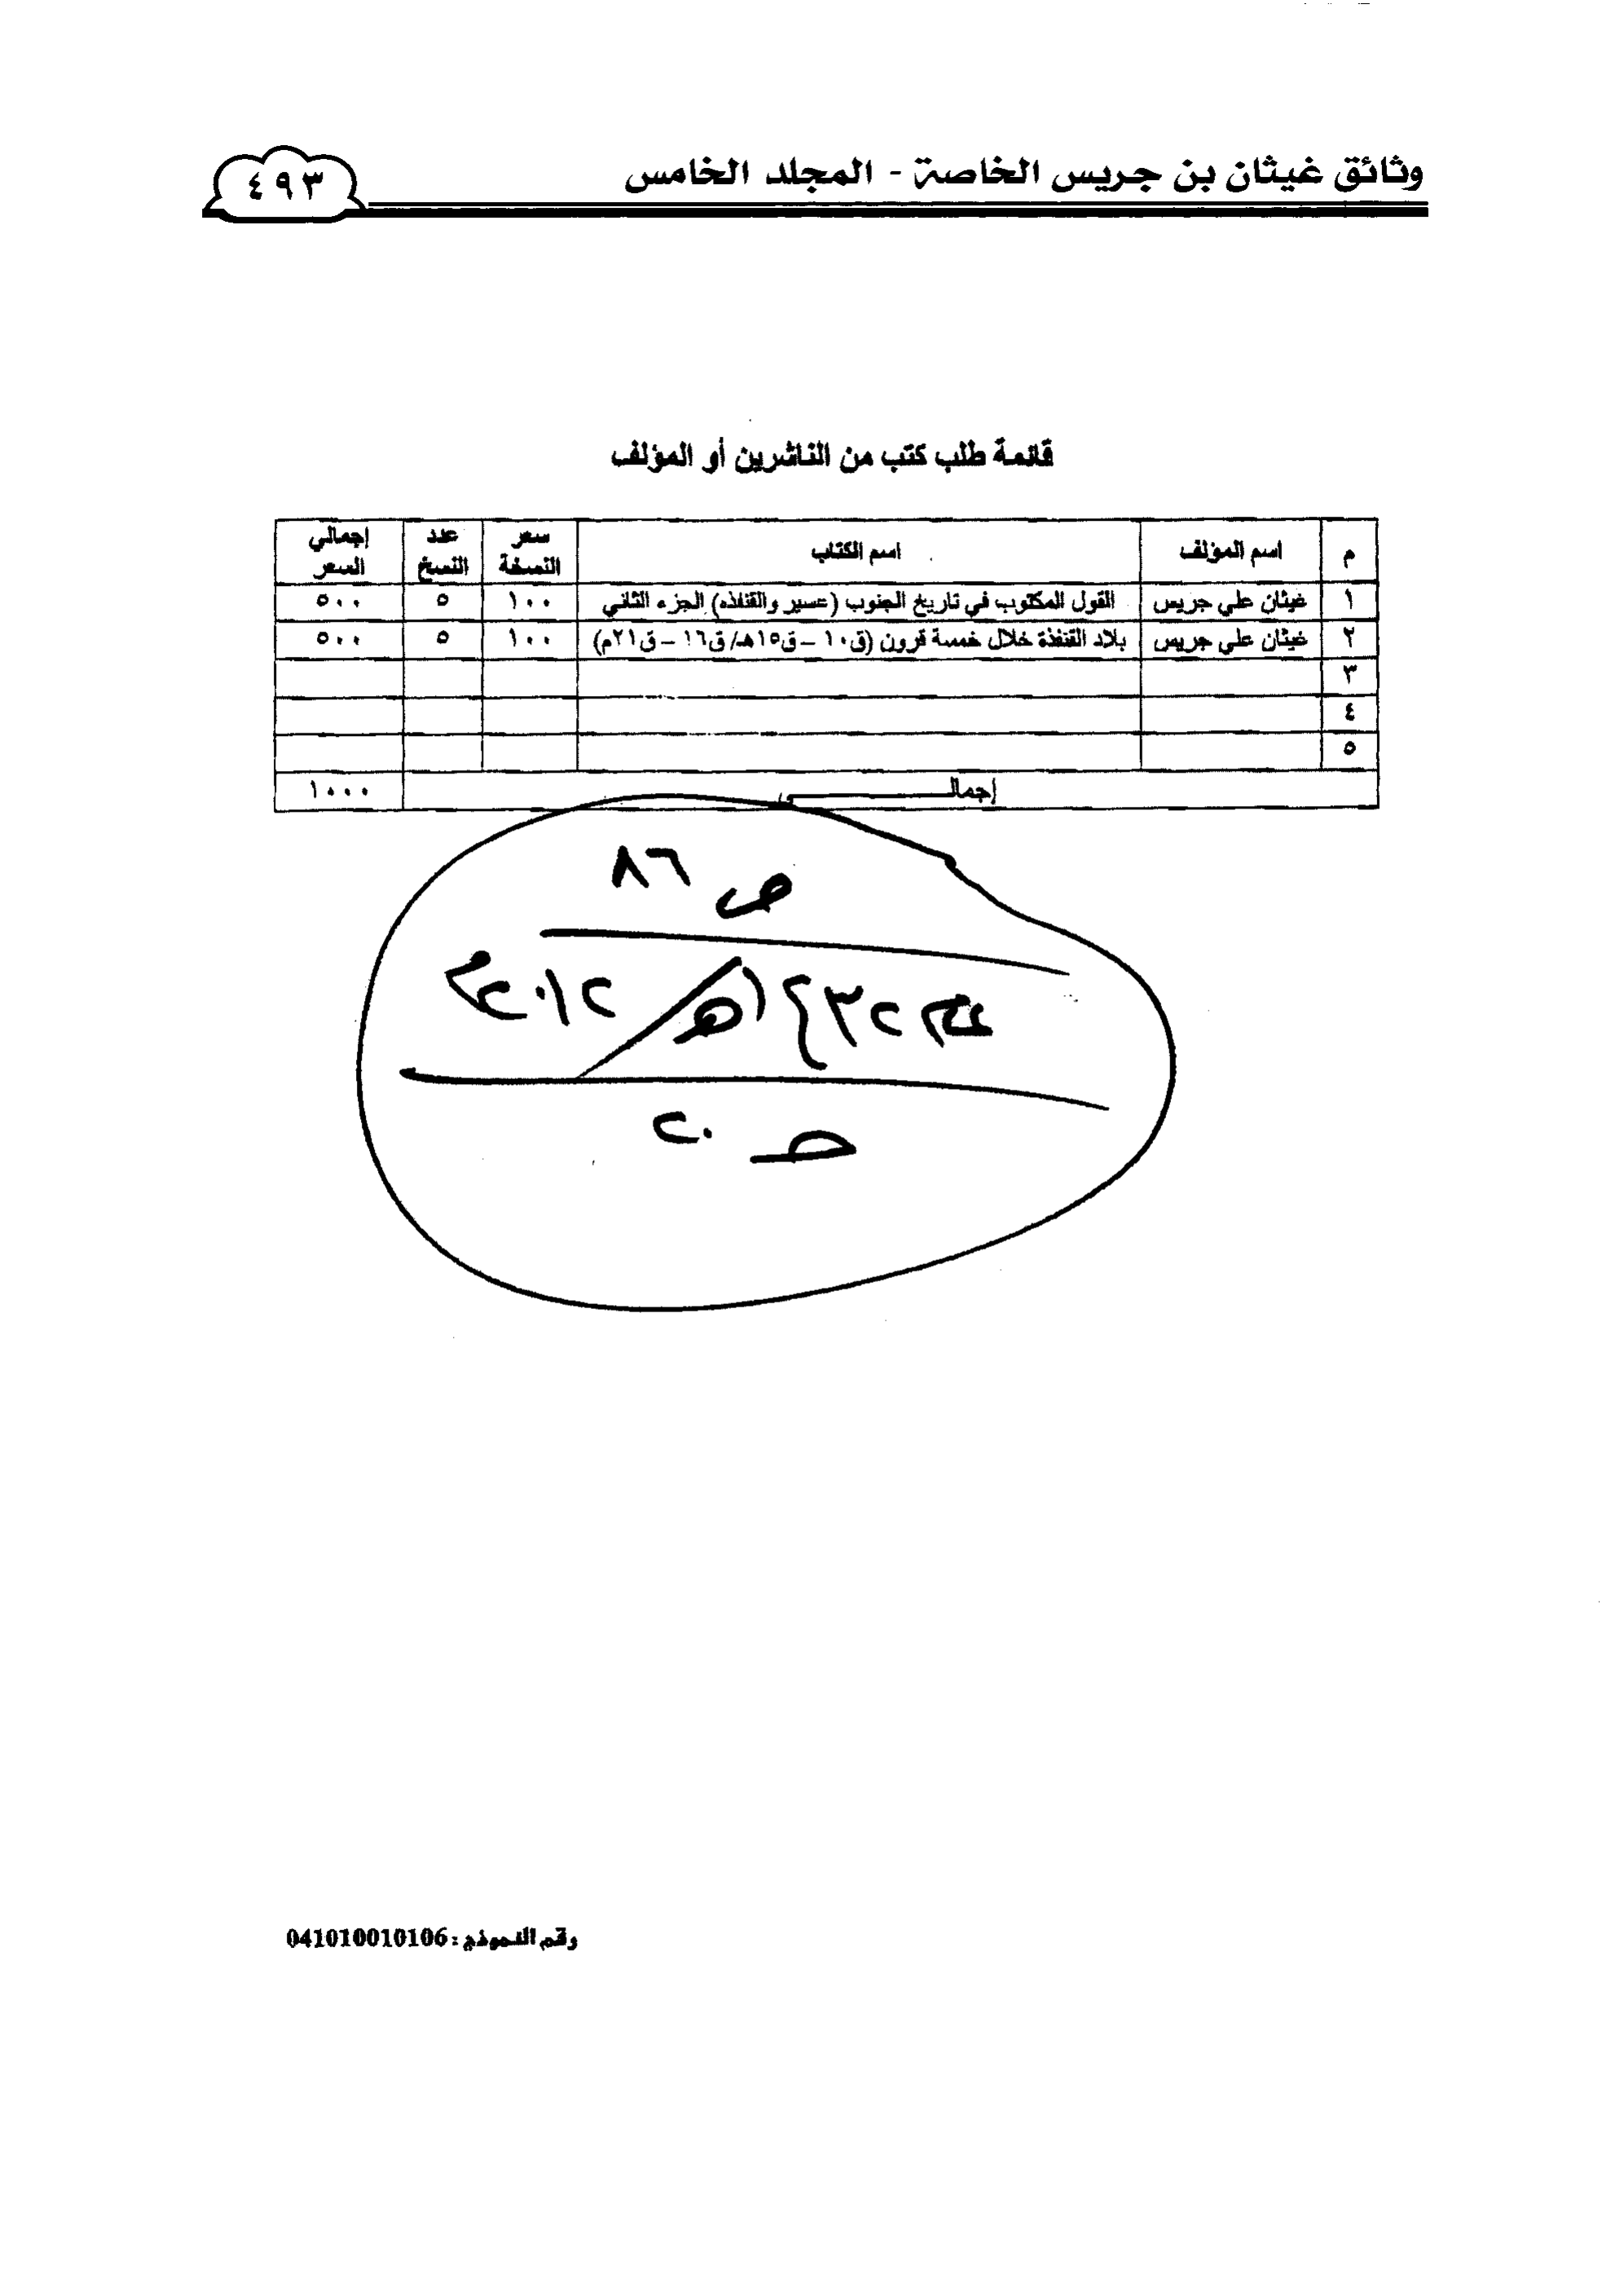 وثائق غيثان بن جريس الخاصة - المجلد الخامس
٤٩٣
قائمة طلب كتب من الناشرين أو المؤلف
م اسم المؤلف اسم الكتاب سعر النسخة عدد النسخ إجمالي السعر
١ غيثان علي جريس القول المكتوب في تاريخ الجنوب (عسير والقنفذه) الجزء الثاني ١٠٠ ٥ ٥٠٠
٢ غيثان علي جريس بلاد القنفذة خلال خمسة قرون (ق١٠ – ق١٥هـ/ ق١٦ – ق٢١م) ١٠٠ ٥ ٥٠٠
٣
٤
٥
إجمالـــــــــي ١٠٠٠
ص ٨٦
٢٣٤١هـ / ٢٠١٢م
٢٠
رقم النموذج : 041010010106